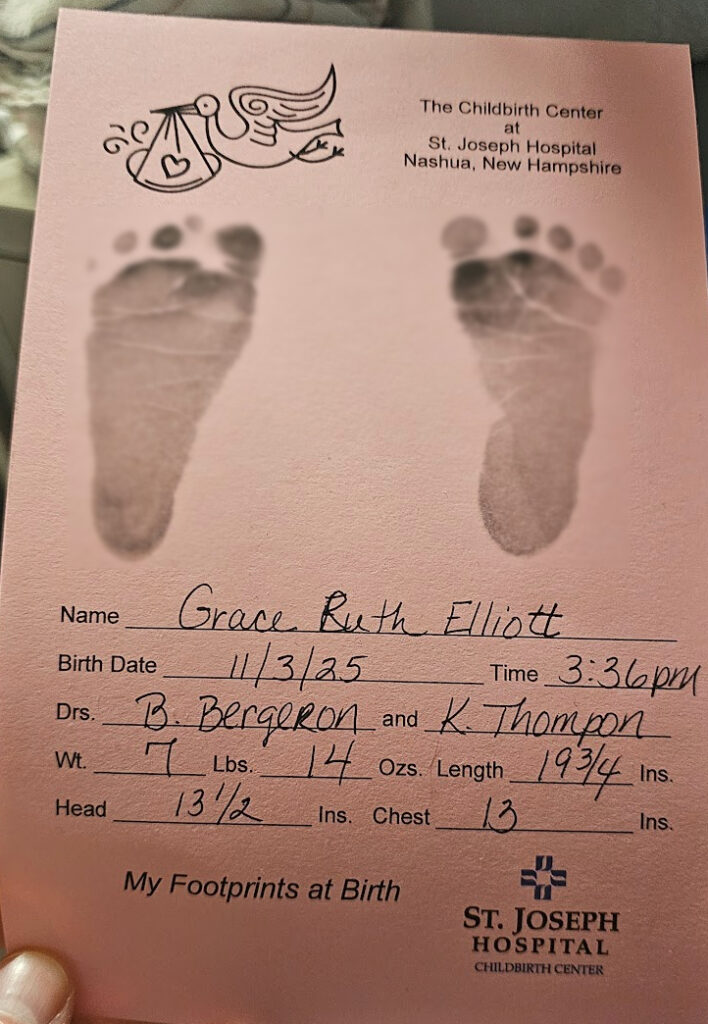 The Childbirth Center
at
St. Joseph Hospital
Nashua, New Hampshire
Name Grace Ruth Elliott
Birth Date 11/3/25 Time 3:36pm
Drs. B. Bergeron and K. Thompon
Wt. 7 Lbs. 14 Ozs. Length 19 3/4 Ins.
Head 13 1/2 Ins. Chest 13 Ins.
My Footprints at Birth
ST. JOSEPH
HOSPITAL
CHILDBIRTH CENTER